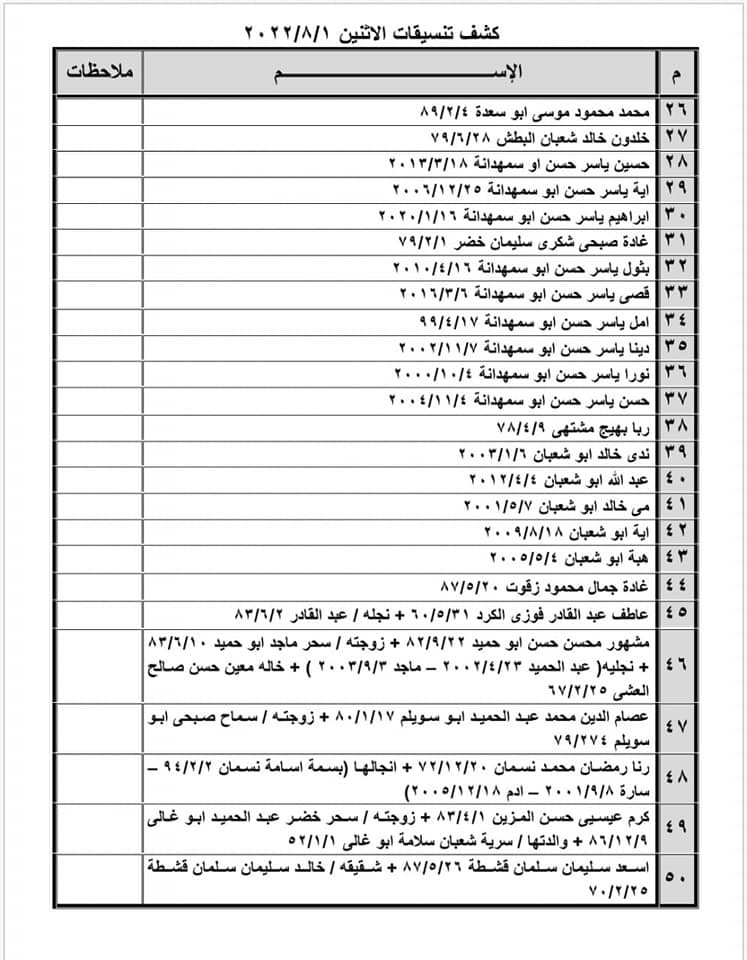 كشف تنسيقات الاثنين ٢٠٢٢/٨/١
م الإســـــــــــــم ملاحظات
٢٦ محمد محمود موسى ابو سعدة ٨٩/٢/٤
٢٧ خلدون خالد شعبان البطش ٧٩/٦/٢٨
٢٨ حسين ياسر حسن او سمهدانة ٢٠١٣/٣/١٨
٢٩ اية ياسر حسن ابو سمهدانة ٢٠٠٦/١٢/٢٥
٣٠ ابراهيم ياسر حسن ابو سمهدانة ٢٠٢٠/١/١٦
٣١ غادة صبحى شكرى سليمان خضر ٧٩/٢/١
٣٢ بثول ياسر حسن ابو سمهدانة ٢٠١٠/٤/١٦
٣٣ قصى ياسر حسن ابو سمهدانة ٢٠١٦/٣/٦
٣٤ امل ياسر حسن ابو سمهدانة ٩٩/٤/١٧
٣٥ دينا ياسر حسن ابو سمهدانة ٢٠٠٢/١١/٧
٣٦ نورا ياسر حسن ابو سمهدانة ٢٠٠٠/١٠/٤
٣٧ حسن ياسر حسن ابو سمهدانة ٢٠٠٤/١١/٤
٣٨ ربا بهيج مشتهى ٧٨/٤/٩
٣٩ ندى خالد ابو شعبان ٢٠٠٣/١/٦
٤٠ عبد الله ابو شعبان ٢٠١٢/٤/٤
٤١ مى خالد ابو شعبان ٢٠٠١/٥/٧
٤٢ اية ابو شعبان ٢٠٠٩/٨/١٨
٤٣ هبة ابو شعبان ٢٠٠٥/٥/٤
٤٤ غادة جمال محمود زقوت ٨٧/٥/٢٠
٤٥ عاطف عبد القادر فوزى الكرد ٦٠/٥/٣١ + نجله / عبد القادر ٨٣/٦/٢
٤٦ مشهور محسن حسن ابو حميد ٨٢/٩/٢٢ + زوجته / سحر ماجد ابو حميد ٨٣/٦/١٠
+ نجليه( عبد الحميد ٢٠٠٢/٤/٢٣ – ماجد ٢٠٠٣/٩/٣ ) + خاله معين حسن صالح
العشى ٦٧/٢/٢٥
٤٧ عصام الدين محمد عبد الحميد ابو سويلم ٨٠/١/١٧ + زوجته / سماح صبحى ابو
سويلم ٧٩/٢٧٤
٤٨ رنا رمضان محمد نسمان ٧٢/١٢/٢٠ + انجالها (بسمة اسامة نسمان ٩٤/٢/٢ –
سارة ٢٠٠١/٩/٨ – ادم ٢٠٠٥/١٢/١٨)
٤٩ كرم عيسيى حسن المزين ٨٣/٤/١ + زوجته / سحر خضر عبد الحميد ابو غالى
٨٦/١٢/٩ + والدتها / سرية شعبان سلامة ابو غالى ٥٢/١/١
٥٠ اسعد سليمان سلمان قشطة ٨٧/٥/٢٦ + شقيقه / خالد سليمان سلمان قشطة
٧٠/٢/٢٥